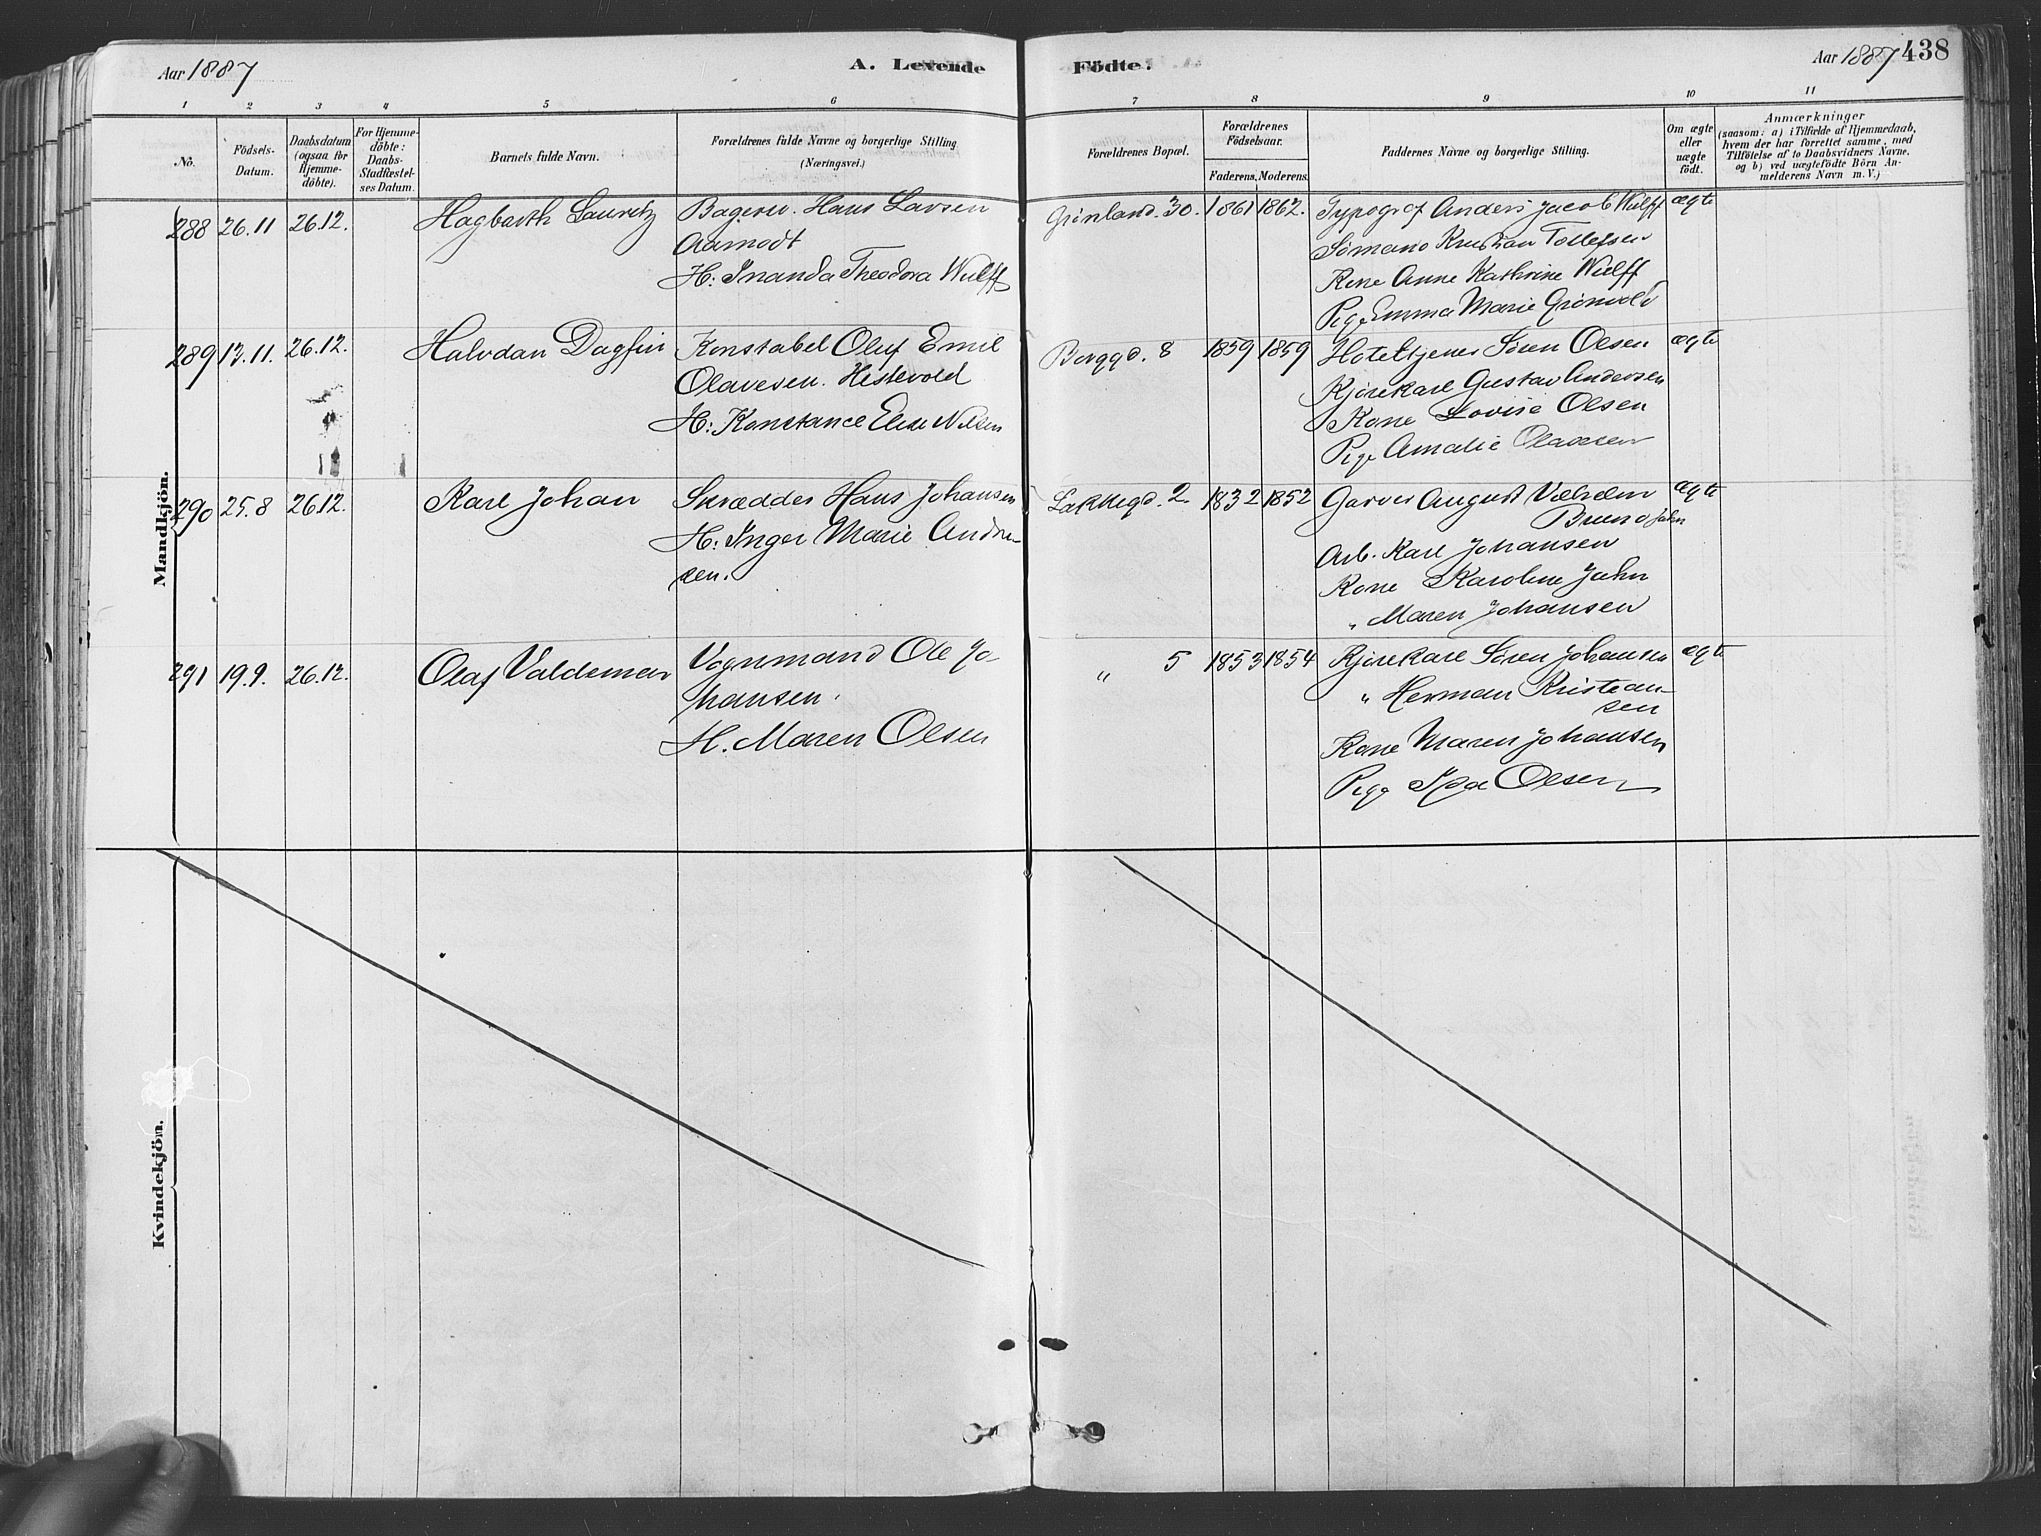 Aar 1887
A. Levende
Födte.
Aar 1887
438
1 2 3 4 5 6 7 8 9 10 11
No.
Födsels-
Datum.
Daabsdatum
(ogsaa for
Hjemme-
döbte).
For Hjemme-
döbte:
Daabs-
Stadfæstel-
ses Datum.
Barnets fulde Navn.
Forældrenes fulde Navne og borgerlige Stilling
(Næringsvei.)
Forældrenes Bopæl.
Forældrenes
Födselsaar.
Faderens. Moderens.
Faddernes Navne og borgerlige Stilling.
Om ægte
eller
uægte
födt.
Anmærkninger
(saasom: a) i Tilfælde af Hjemmedaab,
hvem der har forrettet samme, med
Tilföielse af to Daabsvidners Navne.
og b) ved uægtefödte Börn An-
melderens Navn m. V.)
Mandkjön.
288 26.11 26.12. Hagbarth Lauritz
Bagersv. Hans Larsen
Aamodt
H: Inanda Theodora Wulff
Grønland. 30. 1861 1862.
Typograf Anders Jacob Wulff
Sømand Kristian Tollefsen
Kone Anne Kathrine Wulff
Pige Emma Marie Grønvold
ægte
289 13.11. 26.12. Halvdan Dagfin
Konstabel Oluf Emil
Olavesen. Histevold
H: Konstance Elise Nilsen
Borggd. 8 1859 1859
Hoteltjener Søren Olsen
Kjørekarl Gustav Andersen
Kone Lovise Olsen
Pige Amalie Olavesen
ægte
290 25.8 26.12. Karl Johan
Skrædder Hans Johansen
H: Inger Marie Andre-
sen.
Lakkegd. 2. 1832 1852
Garver August Vilhelm
Bruno Jahn
Arb. Karl Johansen
Kone Karoline Jahn
" Maren Johansen
ægte
291 19.9. 26.12. Olaf Valdemar
Vognmand Ole Jo-
hansen.
H. Maren Olsen
" 5 1853 1854
Kjørekarl Søren Johansen
" Herman Kristian-
sen
Kone Maren Johansen
Pige Olsen
ægte
Kvindekjön.